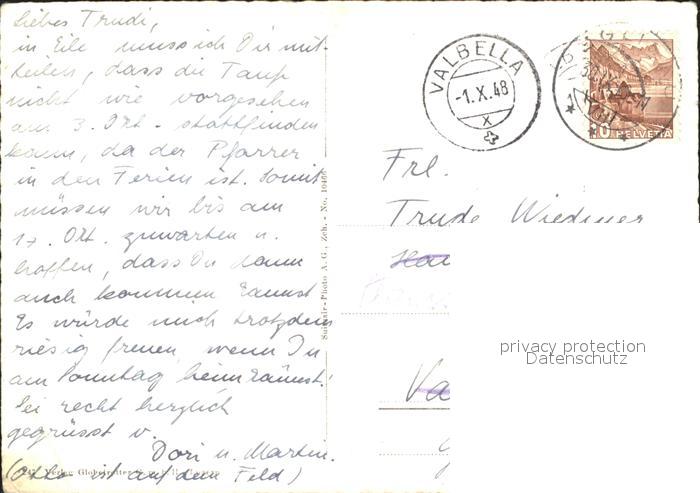 Liebes Trudi,
in Eile muss ich Dir mit-
teilen, dass die Taufe
nicht wie vorgesehen
am 3. Okt. stattfinden
kann, da der Pfarrer
in den Ferien ist. Somit
müssen wir bis am
17. Okt. zuwarten u.
hoffen, dass Du dann
auch kommen kannst.
Es würde mich trotzdem
riesig freuen, wenn Du
am Sonntag heimkämst!
Sei recht herzlich
gegrüsst v.
Dori u. Martin.
(Otto ist auf dem Feld)
Photo A.G., Zch. - No. 10466
VALBELLA
-1.X.48
X
HELVETIA
Frl.
Trude Wiedmer
privacy protection
Datenschutz